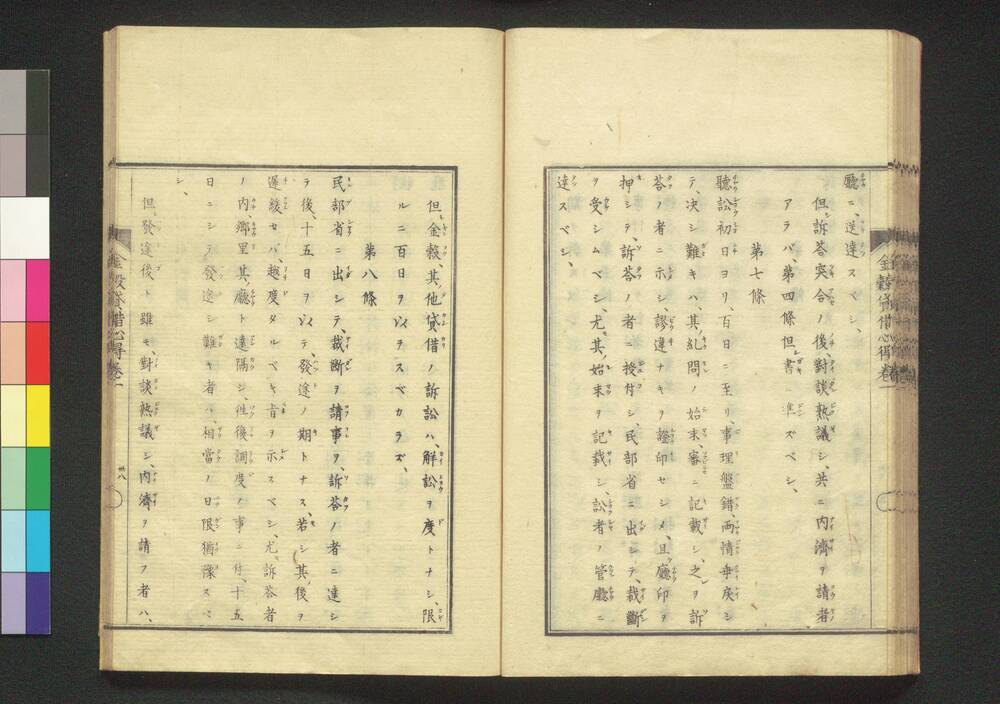 廳ニ、送達スベシ、
但シ訴答突合ノ後、對談熟議シ、共ニ内濟ヲ請者
アラバ、第四條但書ニ準ズベシ、
第七條
聽訟初日ヨリ、百日ニ至リ、事理盤錯、兩情乖戾シ
テ、决シ難キハ、其糺問ノ始末、審ニ記載シ、之ヲ訴
答ノ者ニ示シ、謬違ナキヲ證印セシメ、且廳印ヲ
押シテ、訴答ノ者ニ授付シ、民部省ニ出シテ、裁斷
ヲ受シムベシ、尤其始末ヲ記載シ、訟者ノ管廳ニ
達スベシ、
金穀貸借心得卷一
但金穀、其他貸借ノ訴訟ハ、解訟ヲ度トナシ、限
ルニ百日ヲ以テスベカラズ、
第八條
民部省ニ出シテ、裁斷ヲ請事ヲ、訴答ノ者ニ達シ
テ後、十五日ヲ以テ、發途ノ期トナス、若シ其後ヲ
遲緩セバ、越度タルベキ旨ヲ示スベシ、尤、訴答者
ノ内、郷里其廳ト遠隔シ、徃復調度ノ事ニ付、十五
日ニシテ發途シ難キ者ハ、相當ノ日限猶豫スベ
シ、
但發途後ト雖モ、對談熟議シ、内濟ヲ請フ者ハ、
金穀貸借心得卷一